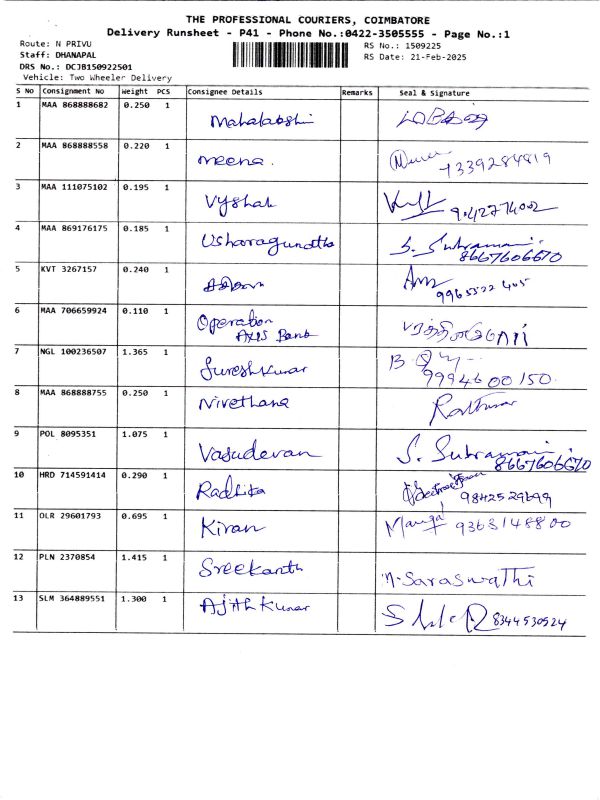 THE PROFESSIONAL COURIERS, COIMBATORE
Delivery Runsheet - P41 - Phone No.:0422-3505555 - Page No.:1
Route: N PRIVU
RS No.: 1509225
Staff: DHANAPAL
RS Date: 21-Feb-2025
DRS No.: DCJB150922501
Vehicle: Two Wheeler Delivery
S No Consignment No Weight PCS Consignee Details Remarks Seal & Signature
1 MAA 868888682 0.250 1 Mahalakshi
2 MAA 868888558 0.220 1 meena. 7339284819
3 MAA 111075102 0.195 1 Vyshak 9042774002
4 MAA 869176175 0.185 1 Usharagunatha S. Subramani
8667606670
5 KVT 3267157 0.240 1
9965522 405
6 MAA 706659924 0.110 1 Operation
AXIS Bank
7 NGL 100236507 1.365 1 Sureshkumar
9994600150
8 MAA 868888755 0.250 1 Nivethana
9 POL 8095351 1.075 1 Vasudevan S. Subramani
8667606670
10 HRD 714591414 0.290 1 Radhika 9842529699
11 OLR 29601793 0.695 1 Kiran 9363148800
12 PLN 2370854 1.415 1 Sreekanth N. Saraswathi
13 SLM 364889551 1.300 1 Ajith Kumar 8344530924